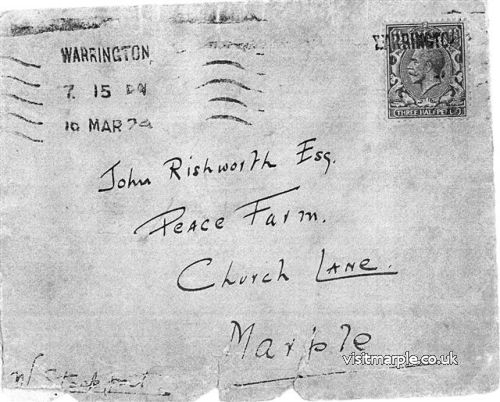 WARRINGTON
WARRINGTON
7 15 PM
10 MAR 24
THREE HALFPENCE
John Rishworth Esq.
Peace Farm.
Church Lane.
Marple
nr Stockport
visitmarple.co.uk